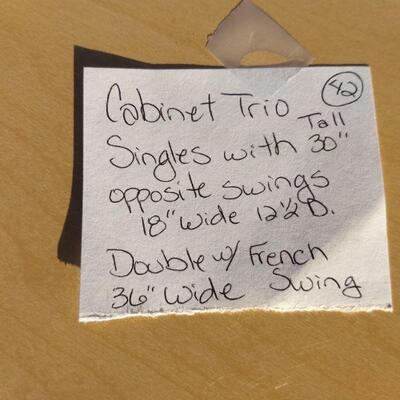 42
Cabinet Trio
Tall
Singles with 30"
opposite swings
18" wide 12½ D.
Double w/ French
36" Wide Swing